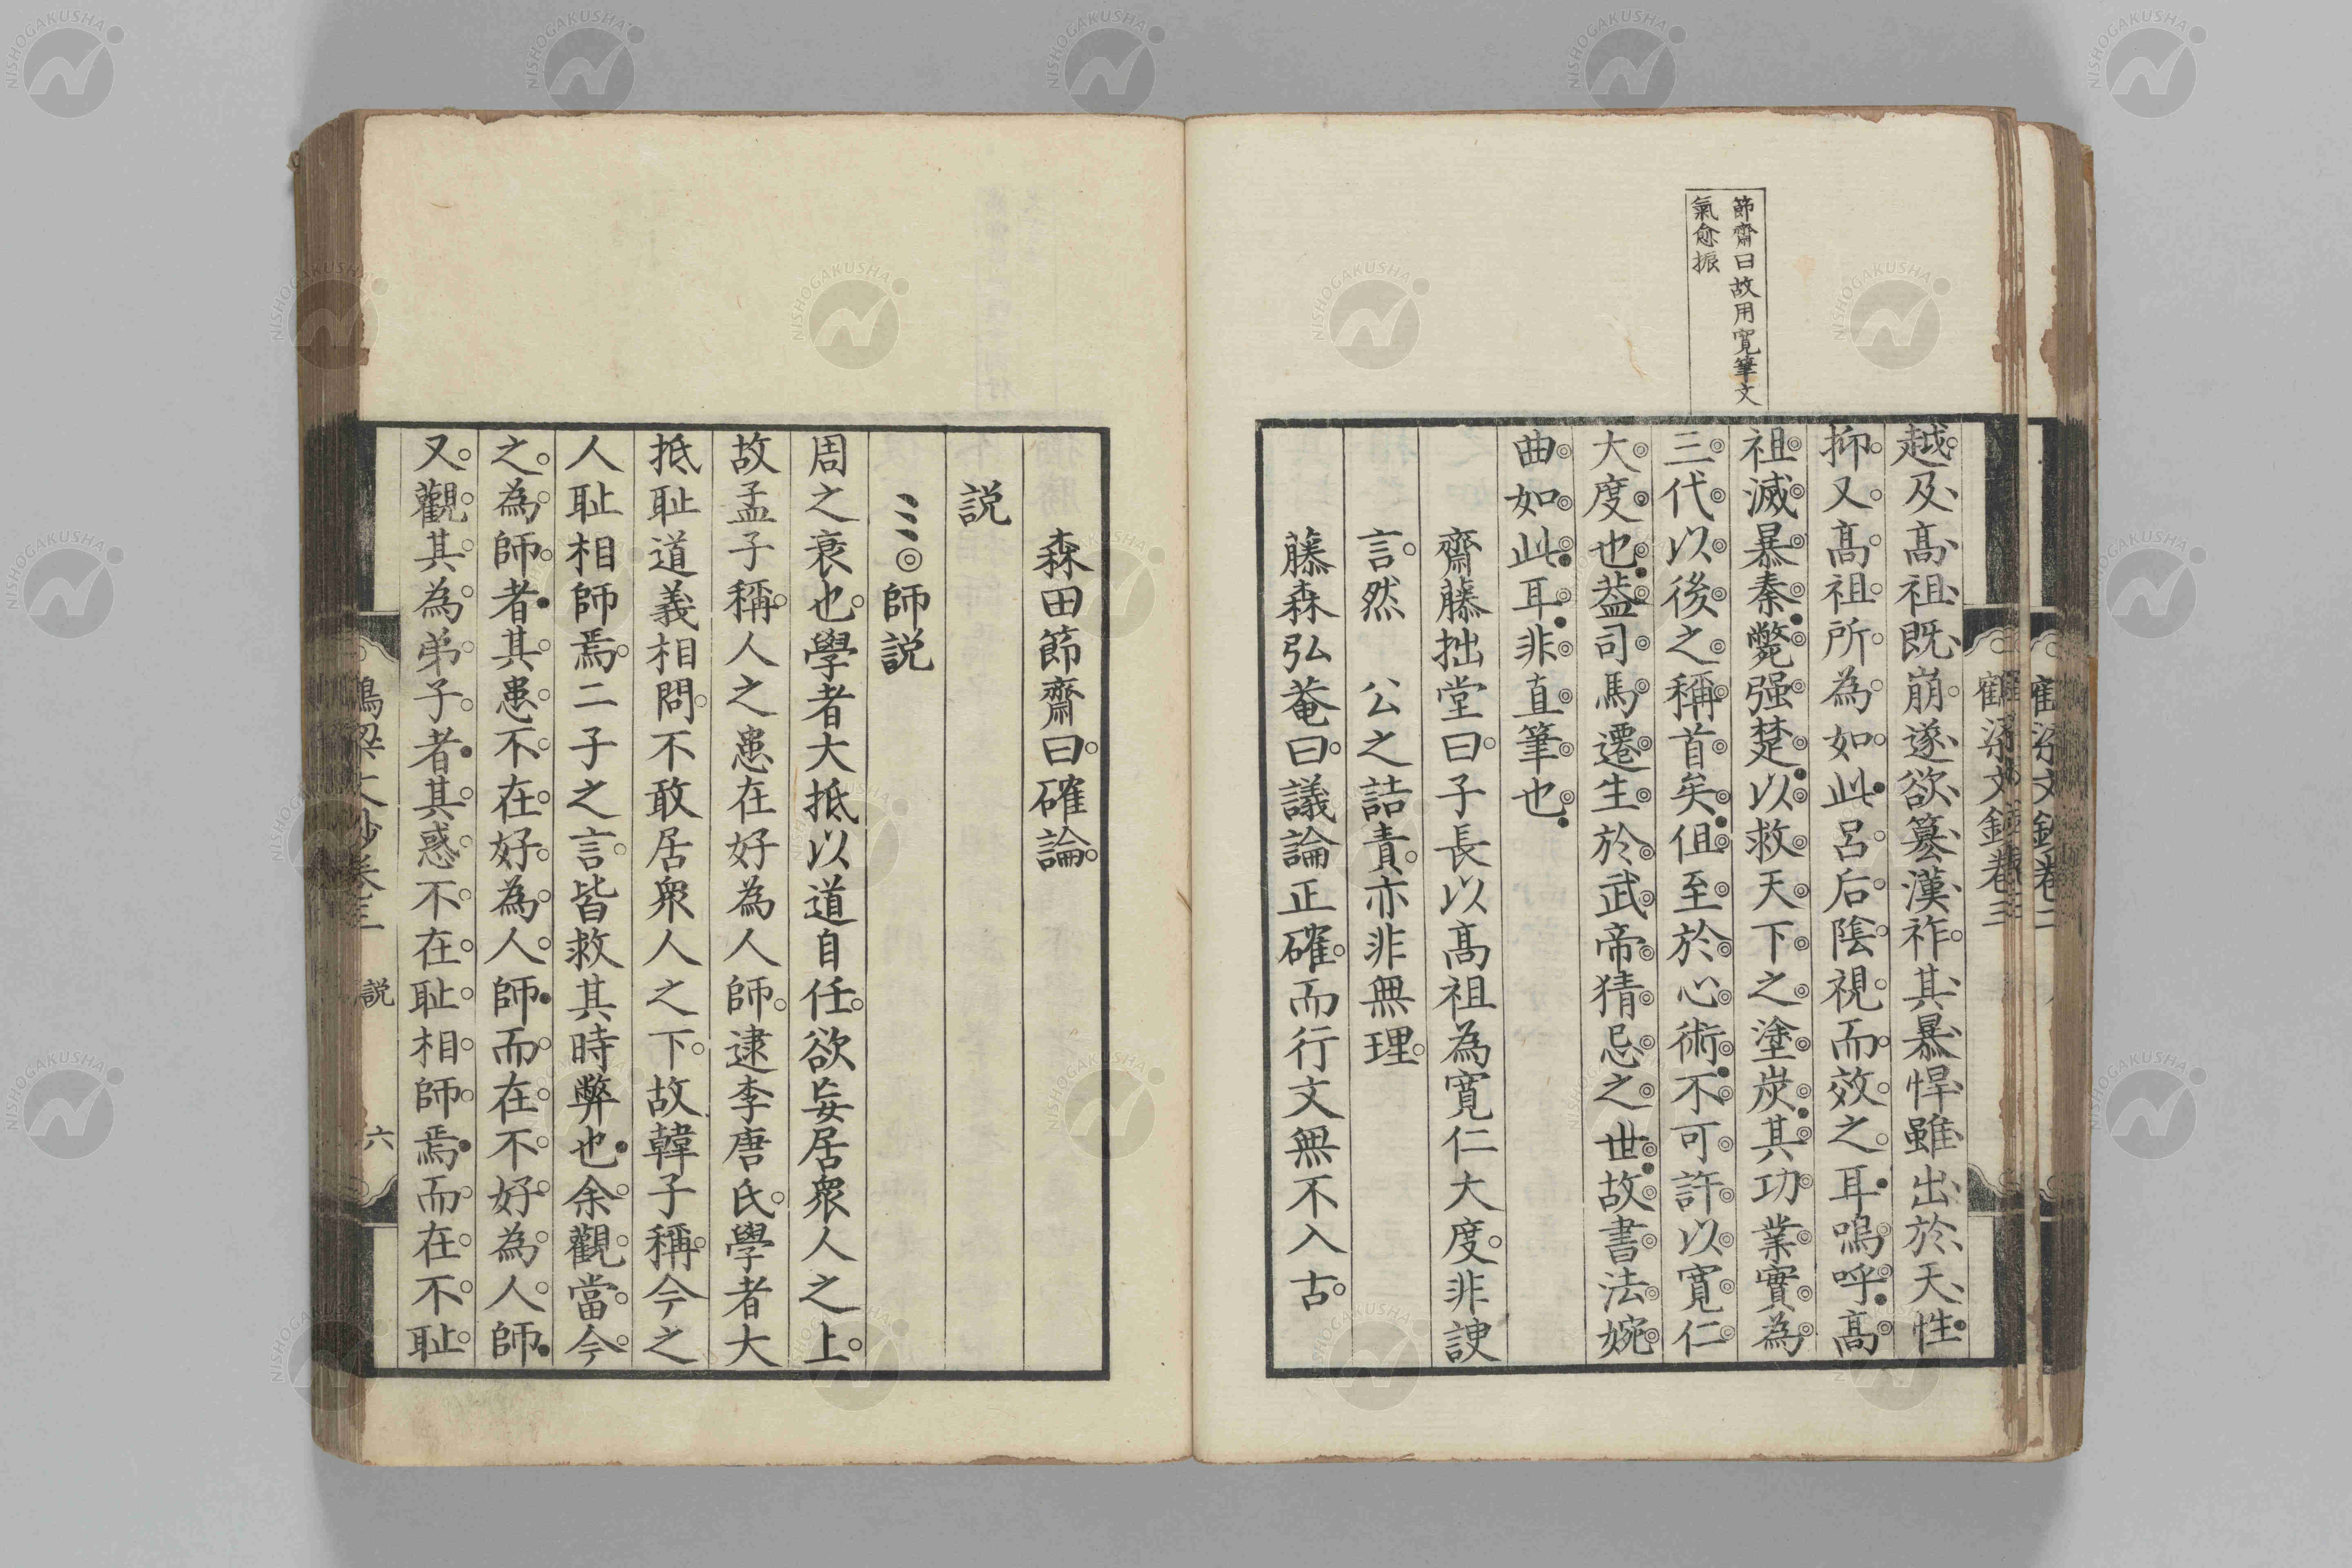 節齋曰故用寛筆文
氣愈振
越及髙祖既崩遂欲簒漢祚其暴悍雖出於天性
抑又髙祖所為如此呂后陰視而效之耳嗚呼髙
祖滅暴秦斃强楚以救天下之塗炭其功業實為
三代以後之稱首矣但至於心術不可許以寛仁
大度也葢司馬遷生於武帝猜忌之世故書法婉
曲如此耳非直筆也
齋藤拙堂曰子長以髙祖為寛仁大度非諛
言然　公之詰責亦非無理
藤森弘菴曰議論正確而行文無不入古
森田節齋曰確論
説
師説
周之衰也學者大抵以道自任欲妄居衆人之上
故孟子稱人之患在好為人師逮李唐氏學者大
抵耻道義相問不敢居衆人之下故韓子稱今之
人耻相師焉二子之言皆救其時弊也余觀當今
之為師者其患不在好為人師而在不好為人師
又觀其為弟子者其惑不在耻相師焉而在不耻
説
六
NISHOGAKUSHA